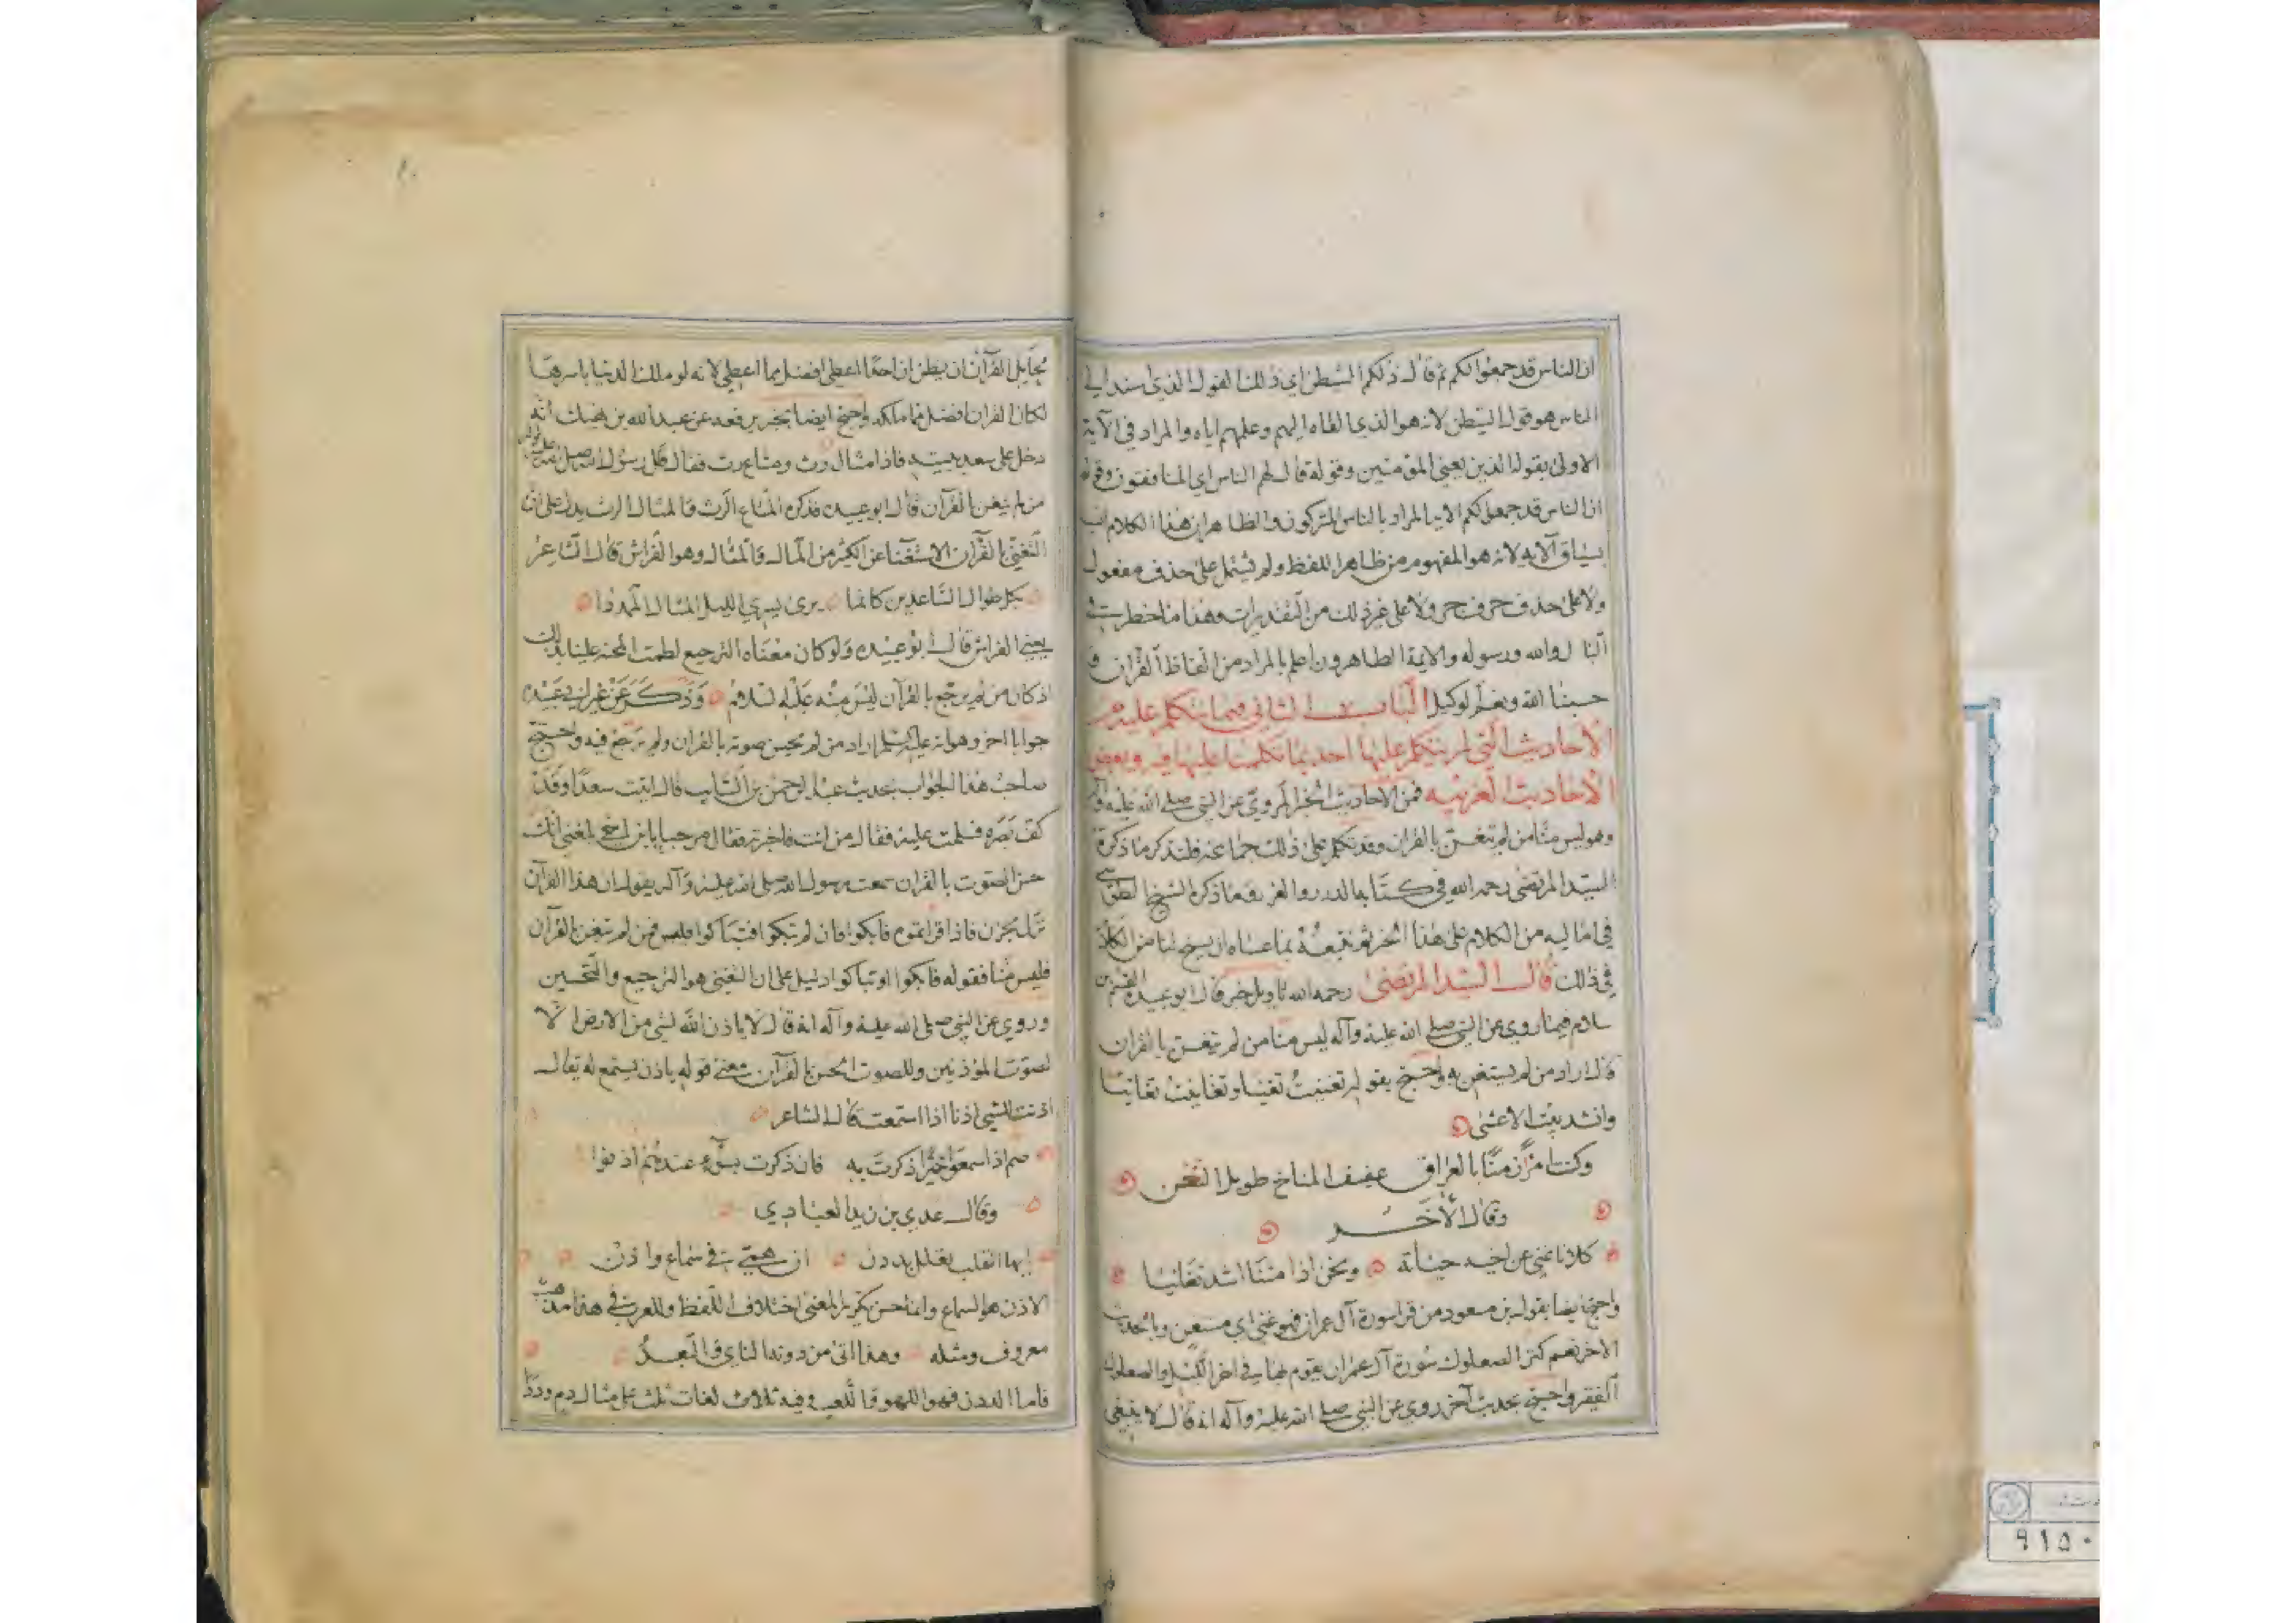 ان الناس قد جمعوا لكم ثم قال ذلكم الشيطن اي ذلك القول الذي اسند الى
الناس هو قول الشيطن لانه هو الذي القاه اليهم وعلمهم اياه والمراد في الآية
الاولى بقوله الذين يعني المؤمنين وقوله قال لهم الناس اي المنافقون وقوله
ان الناس قد جمعوا لكم الايه المراد بالناس المشركون والظاهر ان هذا الكلام
بسياق الآيه لانه هو المفهوم من ظاهر اللفظ ولم يشتمل على حذف مفعول
ولا على حذف حرف جر ولا على غير ذلك من التقديرات وهذا ما خطر
البال والله ورسوله والائمة الطاهرون اعلم بالمراد من الفاظ القرآن و
حسبنا الله ونعم الوكيل الباب الثاني فيما يتكلم عليه من
الأحاديث التي لم يتكلم عليها احد بما تكلمنا عليها فيه وبعض
الأحاديث الغريبه فمن الاحاديث الخبر المروي عن النبي صلى الله عليه وآله
وهو ليس منا من لم يتغن بالقران وقد تكلم على ذلك جماعه فلنذكر ما ذكره
السيد المرتضى رحمه الله في كتابه الدرر والغرر وما ذكره الشيخ الطوسي
في اماليه من الكلام على هذا الخبر ثم نتبعه بما عساه ان يسنح لنا من الكلام
في ذلك قال السيد المرتضى رحمه الله تاويل خبر قال ابو عبيد القسم بن
سلام فيما روي عن النبي صلى الله عليه وآله ليس منا من لم يتغن بالقران
قال اراد من لم يستغن به واحتج بقولهم تغنيت تغنيا وتغانيت تغانيا
وانشد بيت الاعشى
وكنت امرأ زمنا بالعراق عفيف المناخ طويل التغن
وقال الأخر
كلانا غني عن اخيه حياته ونحن اذا متنا اشد تغانيا
واحتج ايضا بقول بن مسعود من قرا سورة آل عمران فهو غني اي مستغن وبالحديث
الاخر نعم كنز الصعلوك سورة آل عمران يقوم بها في اخر الليل والصعلوك
الفقير واحتج بحديث آخر روي عن النبي صلى الله عليه وآله انه قال لا ينبغي
لحامل القرآن ان يظن ان احدًا اعطي افضل مما اعطي لانه لو ملك الدنيا باسرها
لكان القران افضل مما ملكه واحتج ايضا بخبر يرفعه عن عبد الله بن نهيك انه
دخل على سعد بيته فاذا مثال رث ومتاع رث فقال قال رسول الله صلى الله عليه وآله
من لم يتغن بالقرآن قال ابو عبيد فذكره المتاع الرث والمثال الرث يدل على ان
التغني بالقرآن الاستغنا عن الكثير من المال والمثال وهو الفراش قال الشاعر
بكل طوال الساعدين كانما يرى بسرى الليل المثال الممهدا
يعني الفراش قال ابو عبيد ولو كان معناه الترجيع لعظمت المحنه علينا بذلك
اذ كان من لم يرجع بالقرآن ليس منه عليه السلام وذكر عن غير ابي عبيد
جوابا اخر وهو انه عليه السلم اراد من لم يحسن صوته بالقران ولم يرجع فيه واحتج
صاحب هذا الجواب بحديث عبد الرحمن بن السائب قال اتيت سعدا وقد
كف بصره فسلمت عليه فقال من انت فاخبرته فقال مرحبا بابن اخي بلغني انك
حسن الصوت بالقران سمعت رسول الله صلى الله عليه وآله يقول ان هذا القرآن
نزل بحزن فاذا قراتموه فابكوا فان لم تبكوا فتباكوا فمن لم يتغن بالقرآن
فليس منا فقوله فابكوا او تباكوا دليل على ان التغني هو الترجيع والتحسين
وروي عن النبي صلى الله عليه وآله انه قال لا ياذن الله لشي من الارض الا
لصوت المؤذنين وللصوت الحسن بالقرآن ومعنى قوله ياذن يستمع له يقال
اذنت للشي اذنا اذا استمعت قال الشاعر
صم اذا سمعوا خيرا ذكرت به فان ذكرت بسوء عندهم اذنوا
وقال عدي بن زيد العبادي
ايها القلب تعلل بددن ان همي في سماع واذن
الاذن هو السماع وانما حسن تكرير المعنى اختلاف اللفظ وللعرب في هذا مذهب
معروف ومثله وهند اتى من دونها الناي والبعد
فاما الددن فهو اللهو واللعب وفيه ثلاث لغات على مثال دم وددا
٩١٥٠